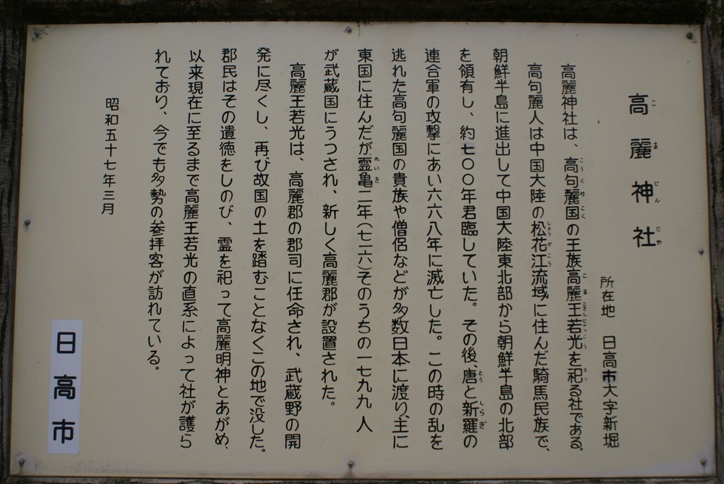 高麗神社
所在地　日高市大字新堀
高麗神社は、高句麗国の王族高麗王若光を祀る社である。
高句麗人は中国大陸の松花江流域に住んだ騎馬民族で、
朝鮮半島に進出して中国大陸東北部から朝鮮半島の北部
を領有し、約七〇〇年君臨していた。その後唐と新羅の
連合軍の攻撃にあい六六八年に滅亡した。この時の乱を
逃れた高句麗国の貴族や僧侶などが多数日本に渡り、主に
東国に住んだが霊亀二年（七一六）そのうちの一七九九人
が武蔵国にうつされ、新しく高麗郡が設置された。
高麗王若光は、高麗郡の郡司に任命され、武蔵野の開
発に尽くし、再び故国の土を踏むことなくこの地で没した。
郡民はその遺徳をしのび、霊を祀って高麗明神とあがめ、
以来現在に至るまで高麗王若光の直系によって社が護ら
れており、今でも多勢の参拝客が訪れている。
昭和五十七年三月
日高市